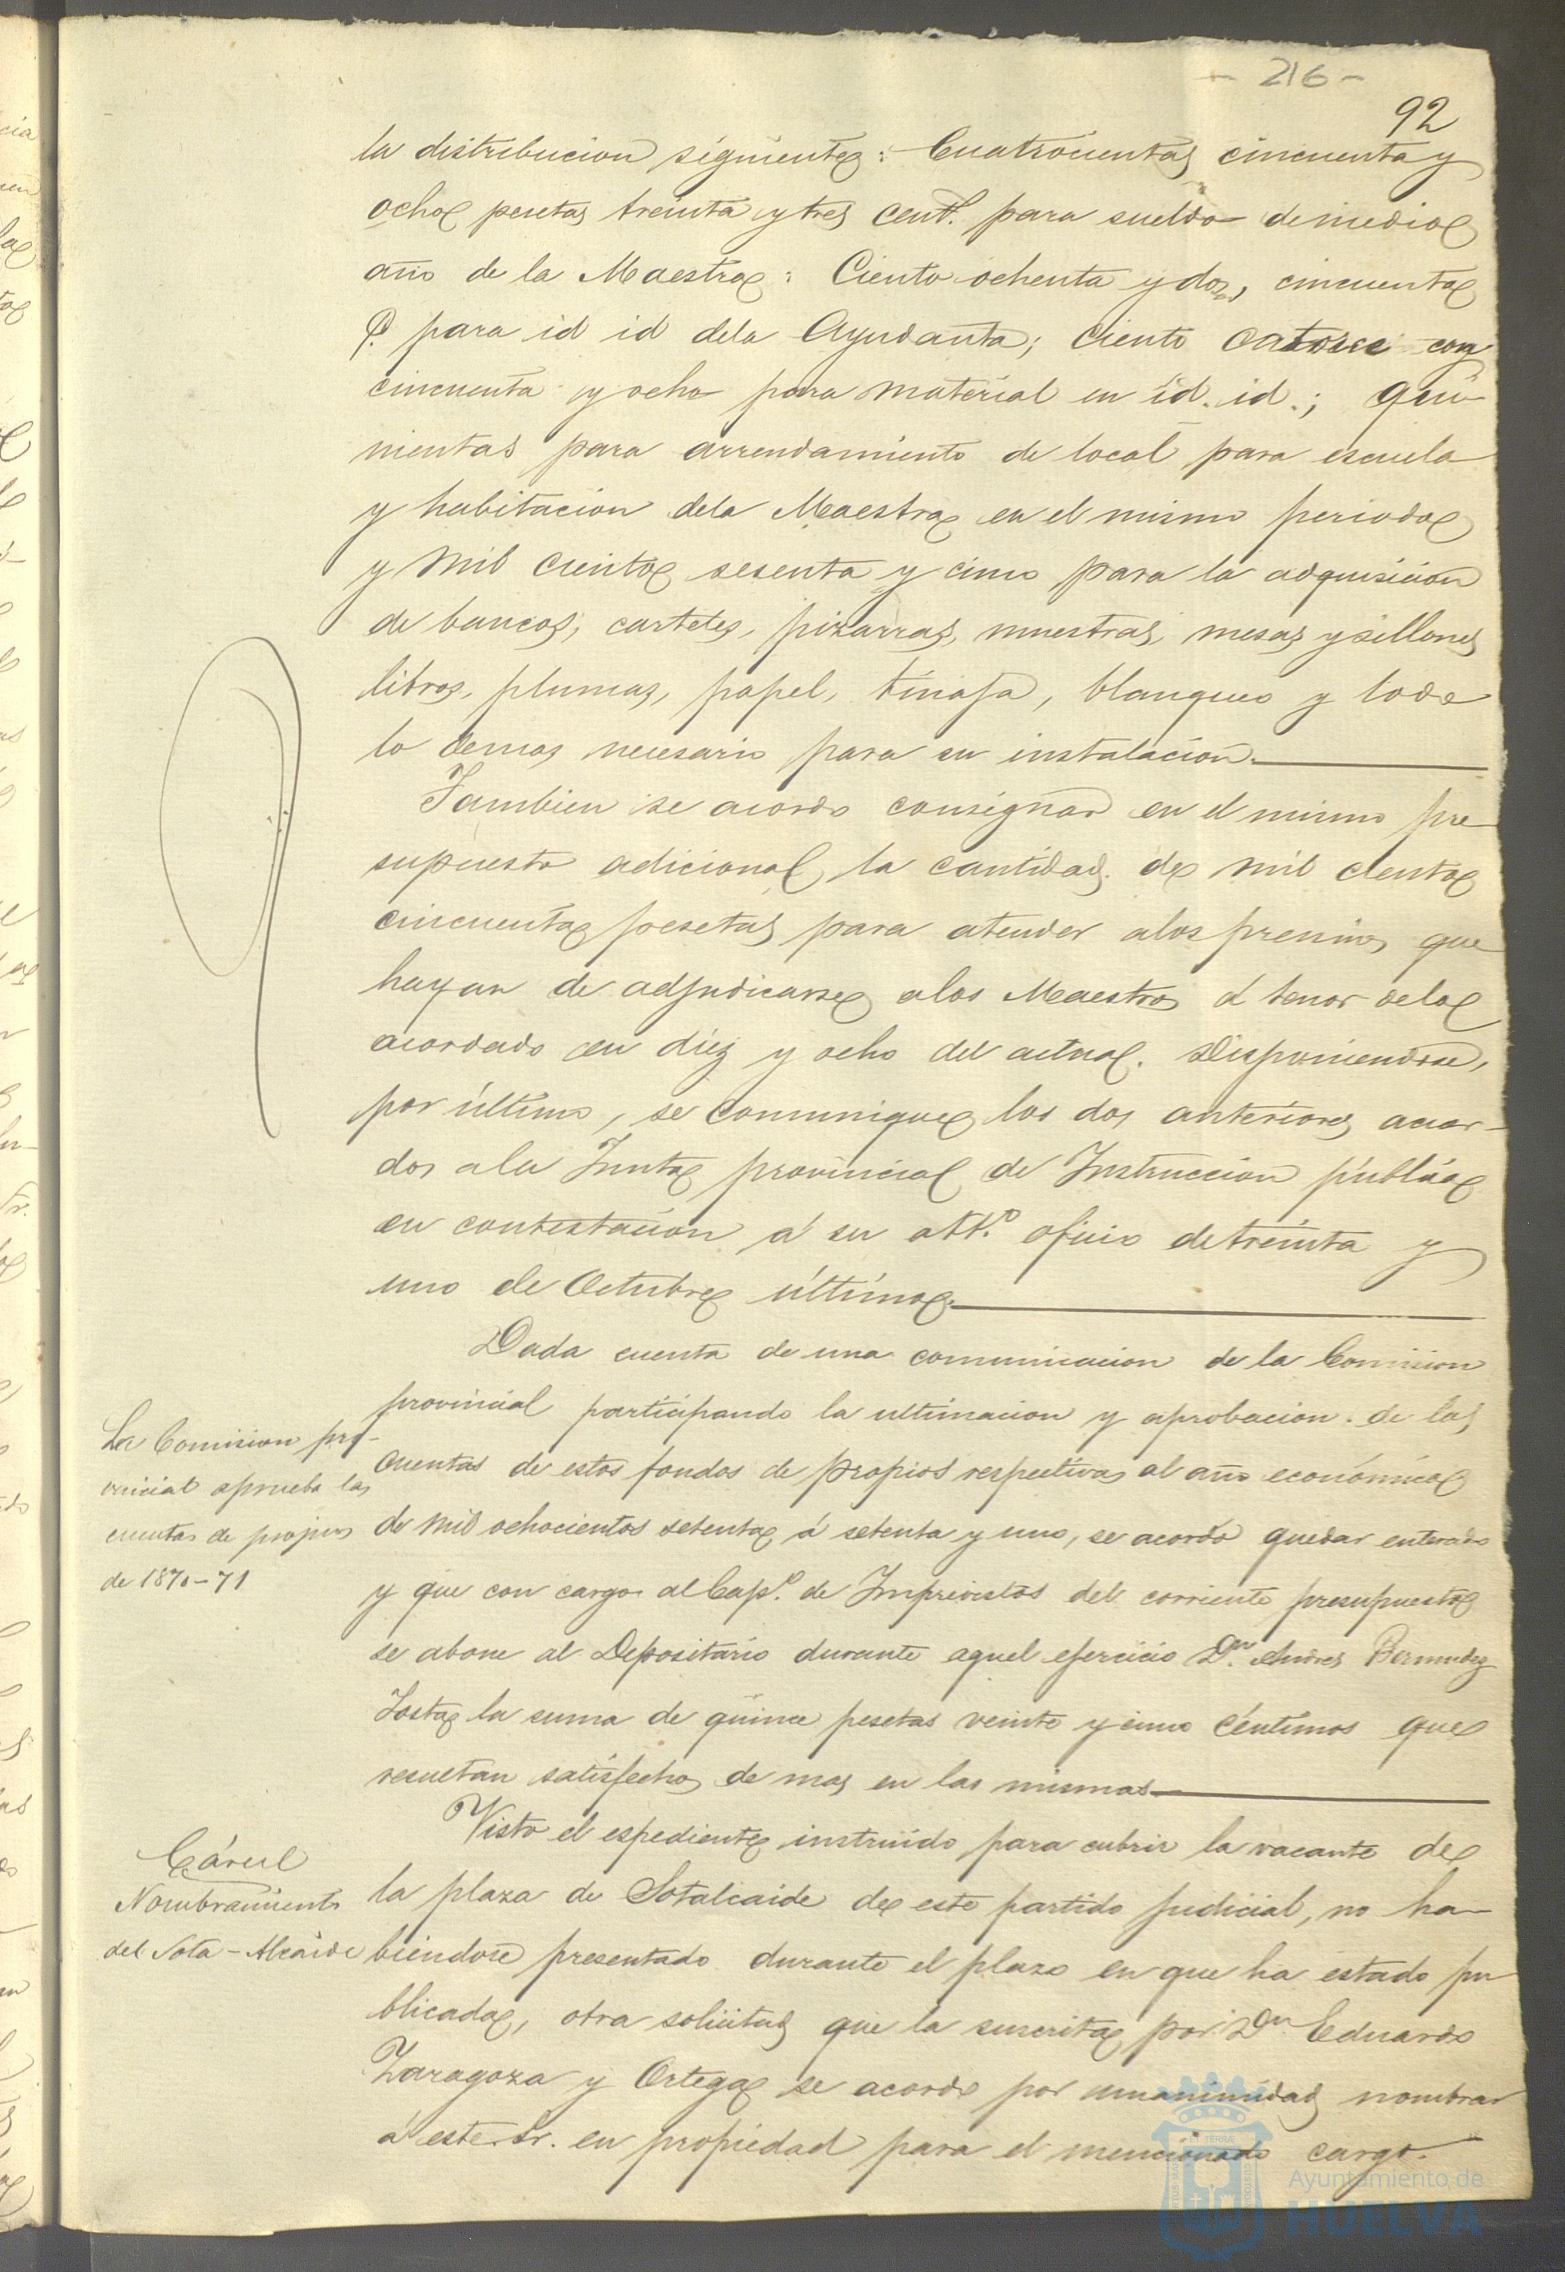 - 216 -
92
la distribucion siguiente: Cuatrocientas cincuenta y
ocho pesetas treinta y tres cent.s para sueldo de medio
año de la Maestra: Ciento ochenta y dos, cincuenta
c. para id id dela Ayudanta; ciento catorce con
cincuenta y ocho para material en id. id.; qui-
nientas para arrendamiento de local para escuela
y habitacion dela Maestra en el mismo periodo
y mil ciento sesenta y cinco para la adquisicion
de bancos, carteles, pizarras, muestras, mesas y sillones
libros, plumas, papel, tinaja, blanqueo y todo
lo demas necesario para su instalacion.
Tambien se acordo consignar en el mismo pre
supuesto adicional la cantidad de mil ciento
cincuenta pesetas para atender alos premios que
hayan de adjudicarse alos Maestros á tenor delo
acordado en diez y ocho del actual. Disponiendose,
por último, se comunique los dos anteriores acuer-
dos ala Junta provincial de Instruccion pública
en contestacion á su att.º oficio de treinta y
uno de Octubre último.
Dada cuenta de una comunicacion de la Comision
provincial participando la ultimacion y aprobacion de las
cuentas de estos fondos de propios respectivas al año económico
de mil ochocientos setenta á setenta y uno, se acordó quedar enterado
y que con cargo al Cap.º de Imprevistos del corriente presupuesto
se abone al Depositario durante aquel ejercicio D.n Andres Bermudez
Tosta la suma de quince pesetas veinte y cinco céntimos que
resultan satisfechos de mas en las mismas
La Comision pro-
vincial aprueba las
cuentas de propios
de 1870-71
Visto el espediente instruido para cubrir la vacante de
la plaza de Sotalcaide de este partido judicial, no ha-
biendose presentado durante el plazo en que ha estado pu
blicada, otra solicitud que la suscrita por D.n Eduardo
Zaragoza y Ortega se acordo por unanimidad nombrar
á este Sr. en propiedad para el mencionado cargo.
Cárcel
Nombramiento
del Sota-Alcaide
Ayuntamiento de
HUELVA